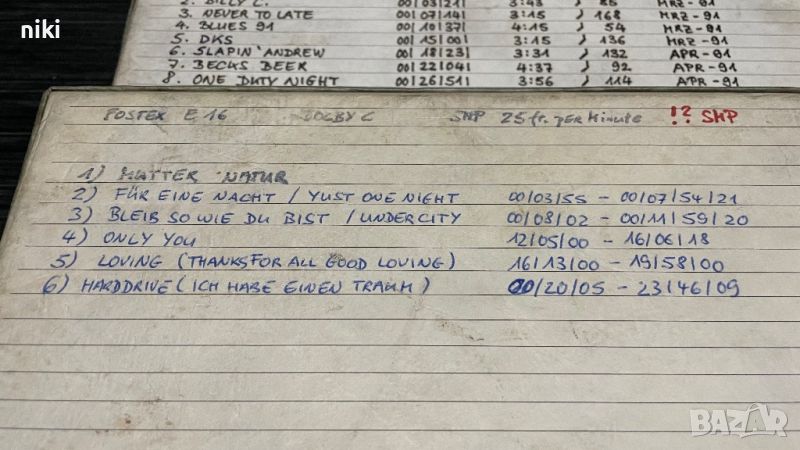 niki
2. BILLY C. 00|03|21| 3:43 ) 85 MRZ-91
3. NEVER TO LATE 00|07|14| 3:15 ) 168 MRZ-91
4. BLUES 91 00|10|37| 4:15 ) 54 MRZ-91
5. DKS 00|15|00| 3:15 ) 136 MRZ-91
6. SLAPIN'ANDREW 00|18|23| 3:31 ) 132 APR-91
7. BECKS BEER 00|22|04| 4:37 ) 92 APR-91
8. ONE DUTY NIGHT 00|26|51| 3:56 ) 114 APR-91
FOSTEX E 16 DOLBY C SMP 25 fr. per Minute !? SMP
1) MUTTER NATUR
2) FÜR EINE NACHT / YUST ONE NIGHT 00/03/55 - 00/07/54/21
3) BLEIB SO WIE DU BIST / UNDERCITY 00/08/02 - 00/11/59/20
4) ONLY YOU 12/05/00 - 16/06/18
5) LOVING (THANKS FOR ALL GOOD LOVING) 16/13/00 - 19/58/00
6) HARDDRIVE (ICH HABE EINEN TRAUM) 00/20/05 - 23/46/09
BAZAR